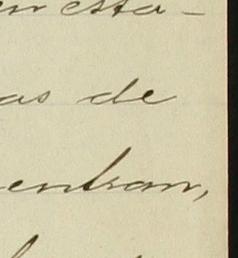 en esta-
as de
entran,